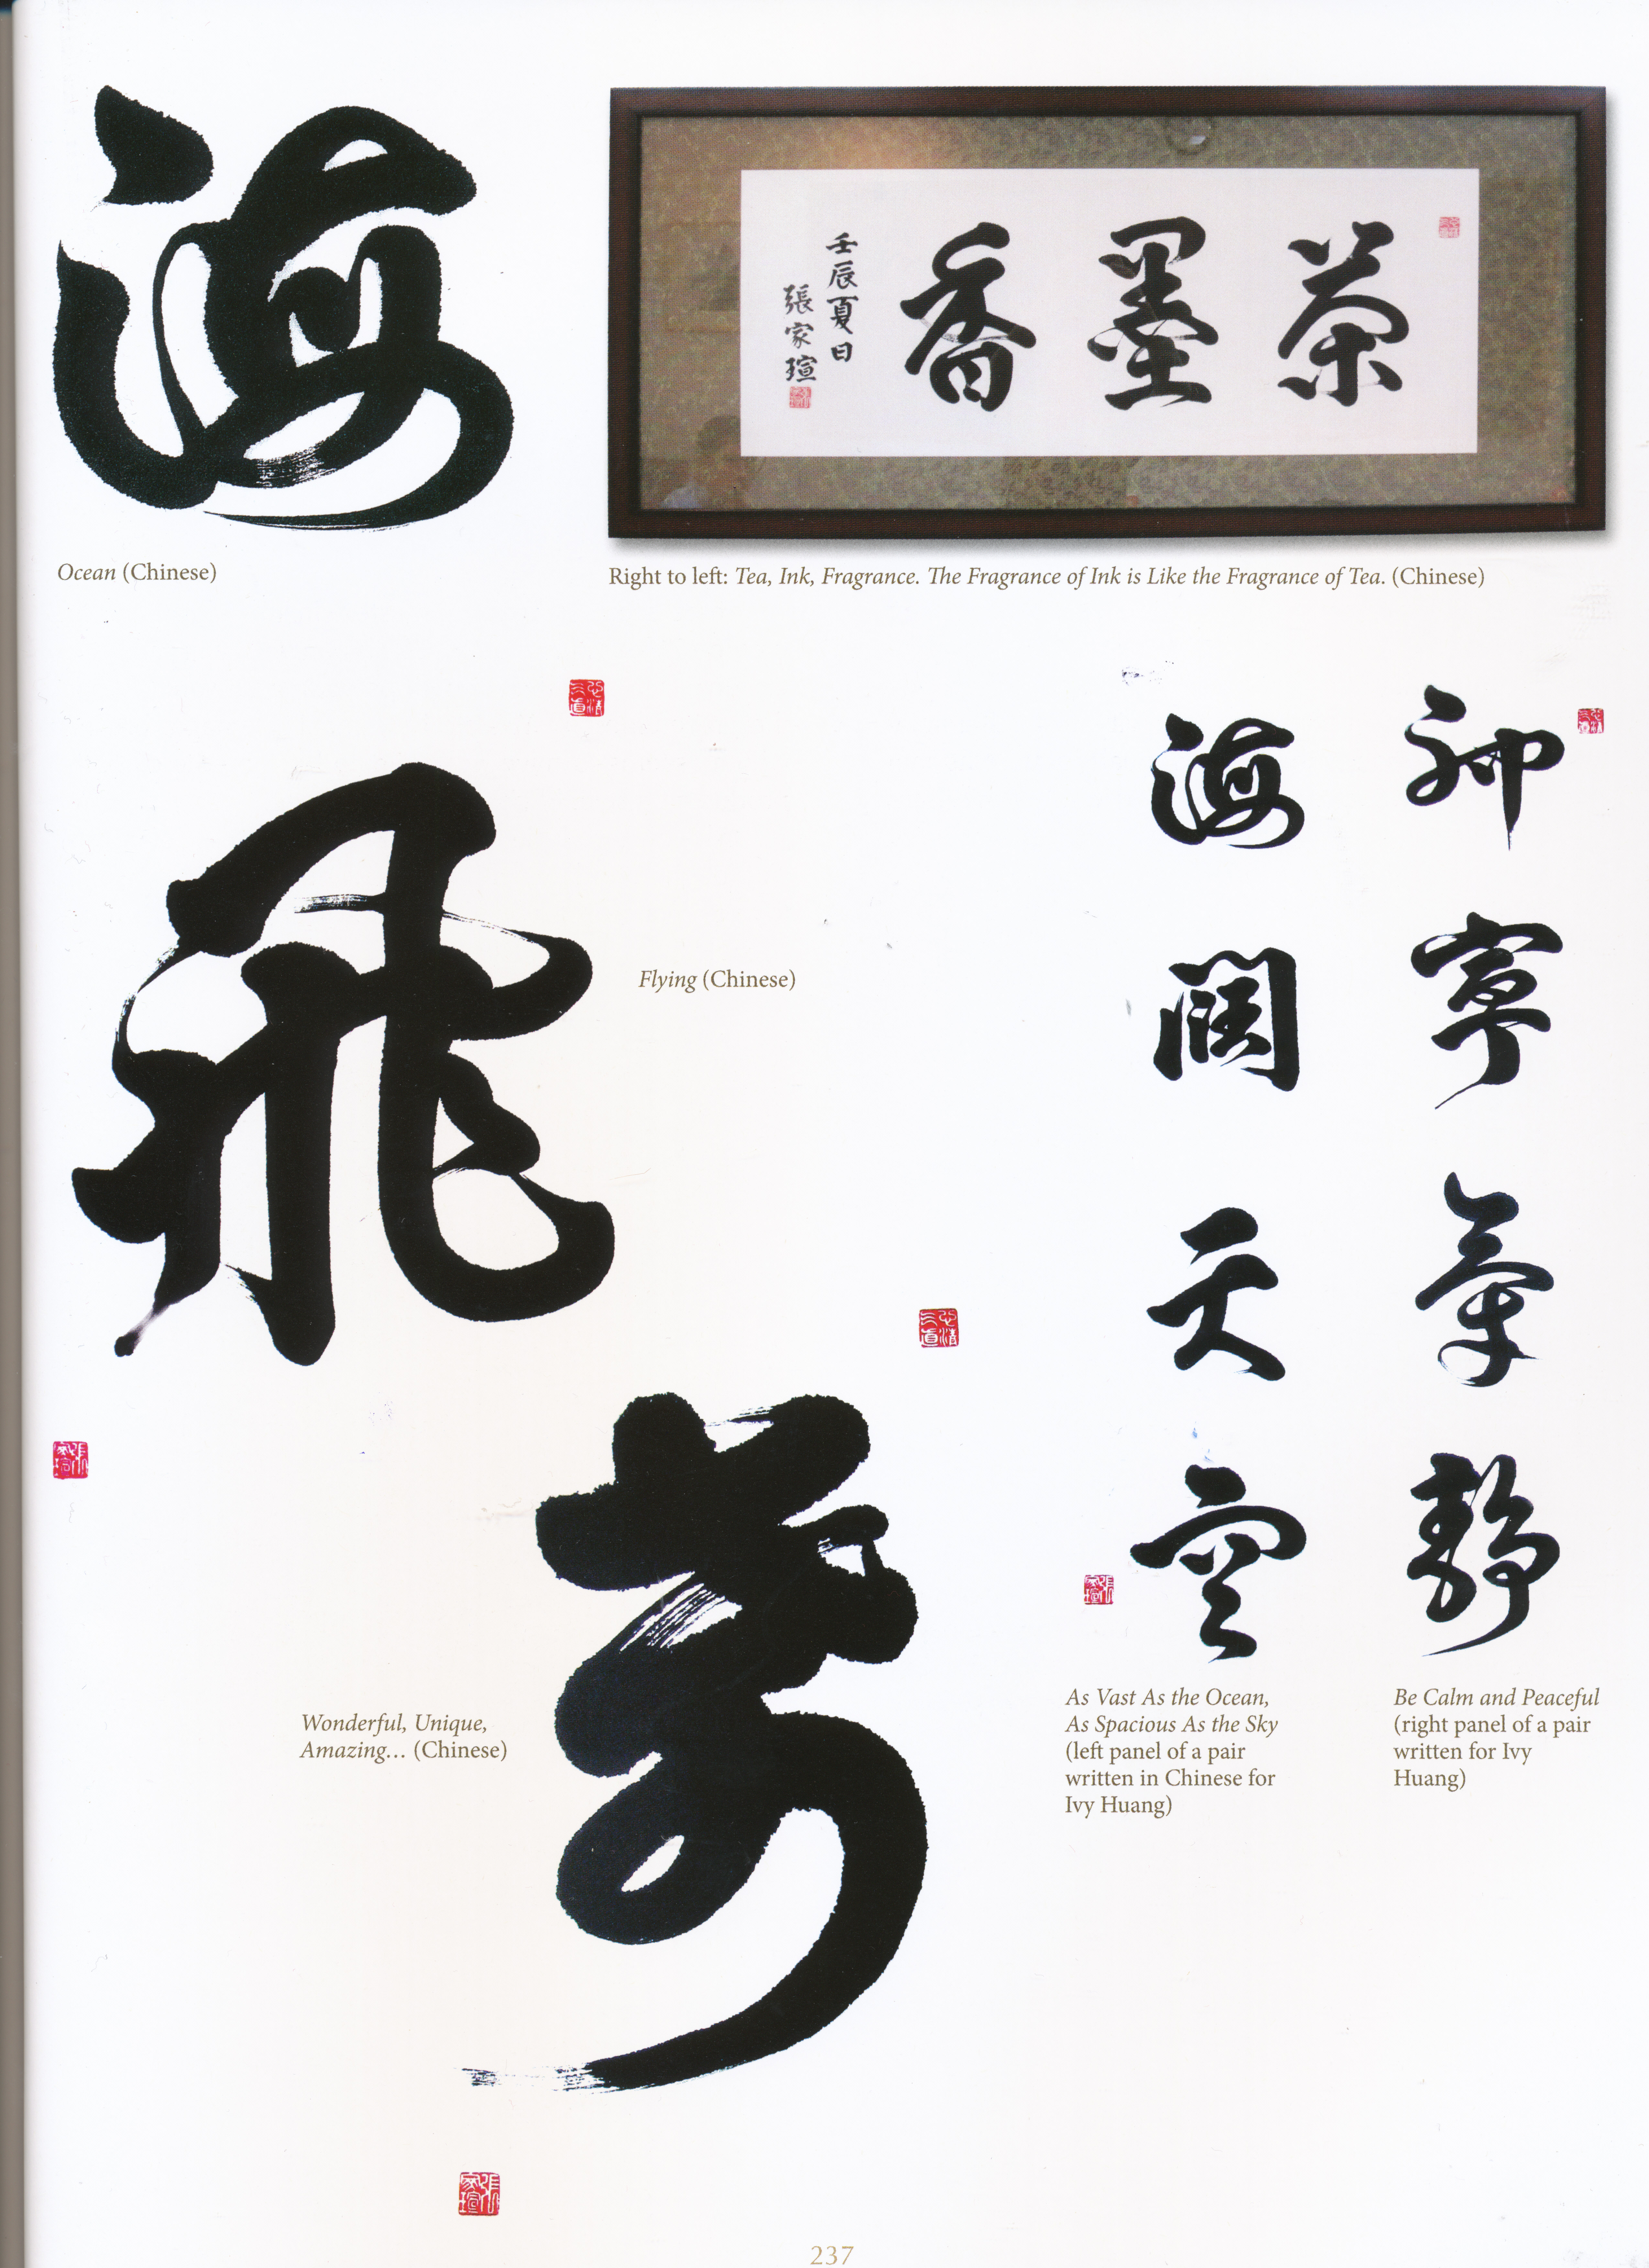 海
茶墨香
壬辰夏日
張家瑄
Ocean (Chinese)
Right to left: Tea, Ink, Fragrance. The Fragrance of Ink is Like the Fragrance of Tea. (Chinese)
飛
Flying (Chinese)
奇
Wonderful, Unique,
Amazing… (Chinese)
神寧氣靜
海闊天空
As Vast As the Ocean,
As Spacious As the Sky
(left panel of a pair
written in Chinese for
Ivy Huang)
Be Calm and Peaceful
(right panel of a pair
written for Ivy
Huang)
237